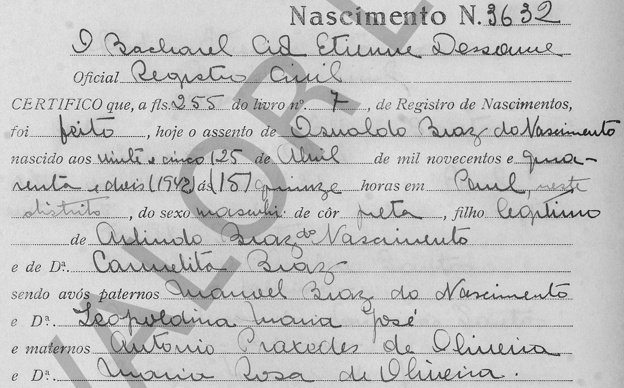 Nascimento N. 3632
O Bacharel Cid Etienne Dessaune
Oficial Registro Civil
CERTIFICO que, a fls. 255 do livro nº. 7, de Registro de Nascimentos,
foi feito, hoje o assento de Osvaldo Braz do Nascimento
nascido aos vinte e cinco (25 de Abril de mil novecentos e qua-
renta e dois (1942) ás (15) quinze horas em Paul, neste
distrito, do sexo mascul: de côr preta, filho legitimo
de Arlindo Braz do Nascimento
e de Dª. Carmelita Braz
sendo avós paternos Manoel Braz do Nascimento
e Dª. Leopoldina Maria José
e maternos Antonio Praxedes de Oliveira
e Dª. Maria Rosa de Oliveira.
VALOR